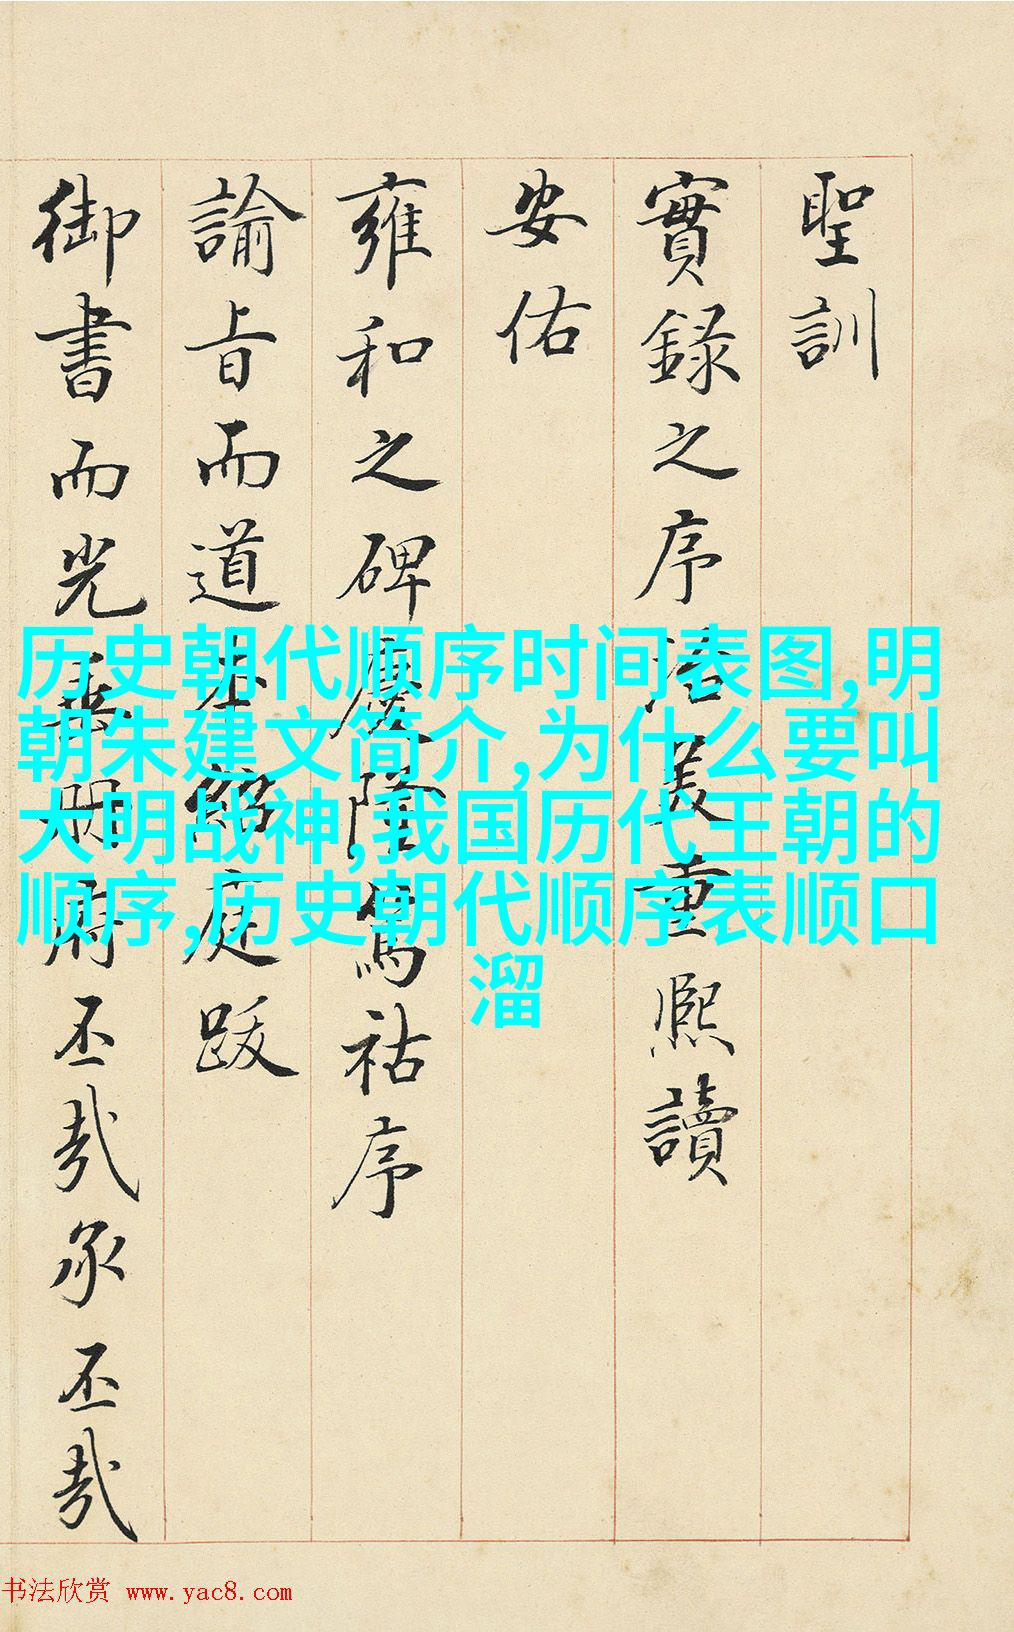 聖訓
實錄之序美重熈讀
安佑
雍和之碑慶隆篤祜序
諭旨而道在紹庭跋
御書而光垂冊府丕哉承丕哉
历史朝代顺序时间表图,明
朝朱建文简介,为什么要叫
大明战神,我国历代王朝的
顺序,历史朝代顺序表顺口
溜
书法欣赏 www.yac8.com